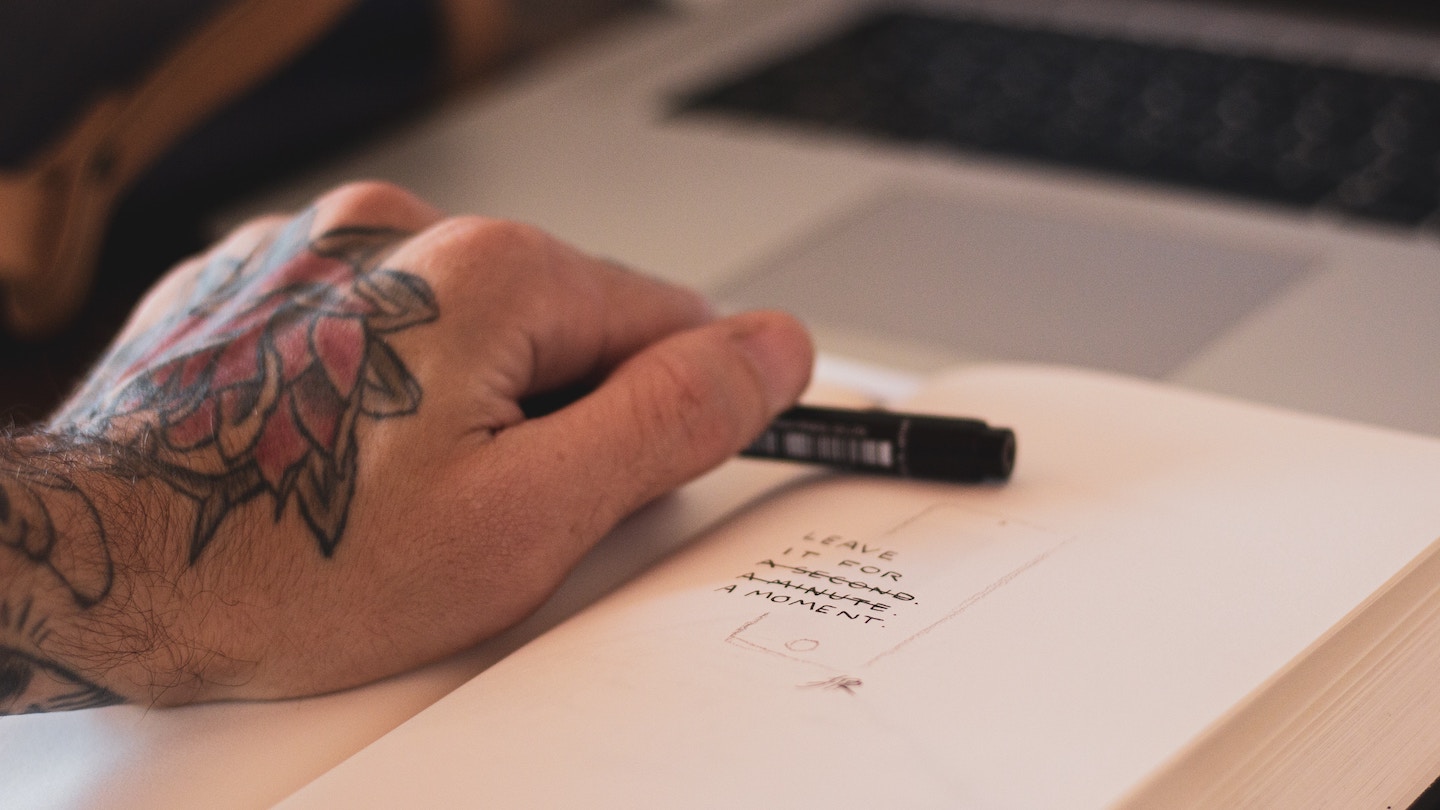 LEAVE
IT FOR
A SECOND.
A MINUTE.
A MOMENT.